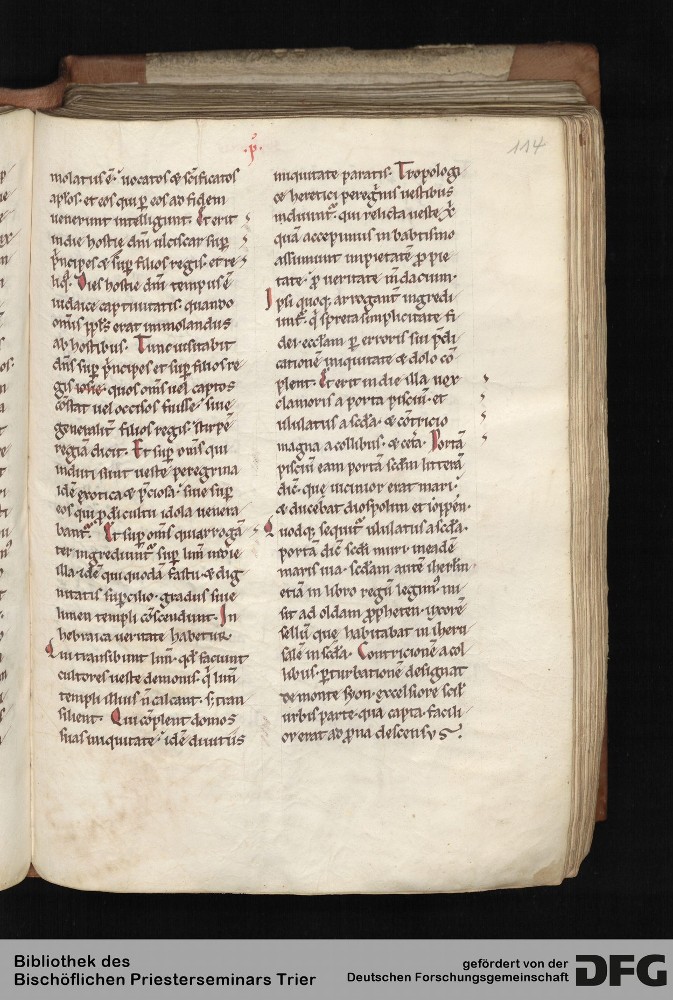 .p̄.
114
molatus ē. uocatos & sc̄ificatos
apl̄os. et eos qui ꝑ eos ad fidem
uenerunt intelligunt. Et erit
in die hostie dn̄i ulciscar sup̄
p̄ncipes & sup̄ filios regis. et re
liq̄. Dies hostie dn̄i tempus ē
iudaice captiuitatis. quando
om̄is ppl̄s erat immolandus
ab hostibus. Tunc uisitabit
dn̄s sup̄ p̄ncipes et sup̄ filios re
gis iosie. quos om̄s uel captos
cōstat uel occisos fuisse. siue
generalit̄ filios regis. stirpē
regiā dicit. Et sup̄ om̄s qui
induti sunt ueste peregrina
idē exotica & p̄ciosa. siue sup̄
eos qui ꝓ dī cultu idola uenera
bant̄. Et sup̄ om̄s qui arrogā
ter ingrediunt̄ sup̄ lim̄ in die
illa. idē qui quodā fastu. & dig
nitatis sup̄cilio. gradus siue
limen templi cōscendunt. In
hebraica ueritate habetur.
Qui transibunt lim̄. qd̄ faciunt
cultores ueste demonis. q̄ lim̄
templi illius n̄ calcant. s; tran
silient. Qui cōplent domos
suas iniquitate. idē diuitiis
iniquitate paratis. Tropologi
ce heretici peregrinis uestibus
induunt̄. qui relicta ueste x̄p̄i
quā accepimus in babtismo
assumunt impietatem ꝓ pie
tate. ꝓ ueritate m̄dacium.
Ipsi quoq; arrogant̄ ingredi
unt̄. q̄ spreta simplicitate fi
dei eccl̄am ꝑ erroris sui p̄di
cationem iniquitate & dolo cō
plent. Et erit in die illa uox
clamoris a porta pisciū. et
ululatus a scd̄a. & cōtricio
magna a collibus. & cet̄a. Portā
pisciū eam portā scd̄m litterā
dic̄. que uicinior erat mari.
& ducebat diospolim et ioppen.
Quodq; sequit̄ ululatus a scd̄a.
portā dic̄ scd̄i muri. in eadē
maris uia. scd̄am autē ih̄erl̄m
etiā in libro regū legim᷒. mi
sit ad oldam ꝓpheten. uxorē
sellū que habitabat in iheru
salē in scd̄a. Contricionē a col
libus. ꝑturbationē designat
de monte syon. excelsiore scil̄
urbis parte. qua capta. facili
or erat ad ꝓna descensus.
Bibliothek des
Bischöflichen Priesterseminars Trier
gefördert von der
Deutschen Forschungsgemeinschaft
DFG